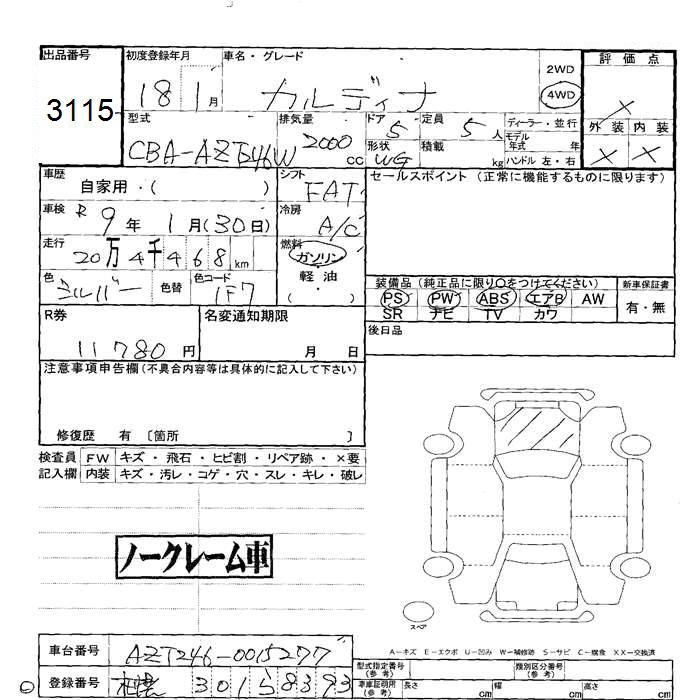 出品番号 初度登録年月 車名・グレード 評価点
3115 18 1月 カルディナ 2WD 4WD ×
型式 排気量 ドア 定員 ディーラー・並行 外装 内装
CBA-AZT246W 2000 cc 5 5人 モデル年式 年 × ×
形状 WG 積載 kg ハンドル 左・右
車歴 シフト セールスポイント (正常に機能するものに限ります)
自家用・( ) FAT
車検 R 9年 1月(30日) 冷房 A/C
走行 20万4千468km 燃料 ガソリン
軽油
( ・ )
色 シルバー 色替 色コード 1F7
装備品(純正品に限り○をつけてください) 新車保証書
PS PW ABS エアB AW 有・無
SR ナビ TV カワ
R券 名変通知期限 後日品
11780円 月 日
注意事項申告欄(不具合内容等は具体的に記入して下さい)
修復歴 有 〔箇所 〕
検査員 FW キズ・飛石・ヒビ割・リペア跡・×要
記入欄 内装 キズ・汚レ・コゲ・穴・スレ・キレ・破レ
ノークレーム車
スペア
A-キズ E-エクボ U-凹み W-補修跡 S-サビ C-腐食 XX-交換済
車台番号 AZT246-0015277
型式指定番号(参考) 類別区分番号(参考)
登録番号 札幌 301 5 8393
車庫証明用(参考) 長さ cm 幅 cm 高さ cm